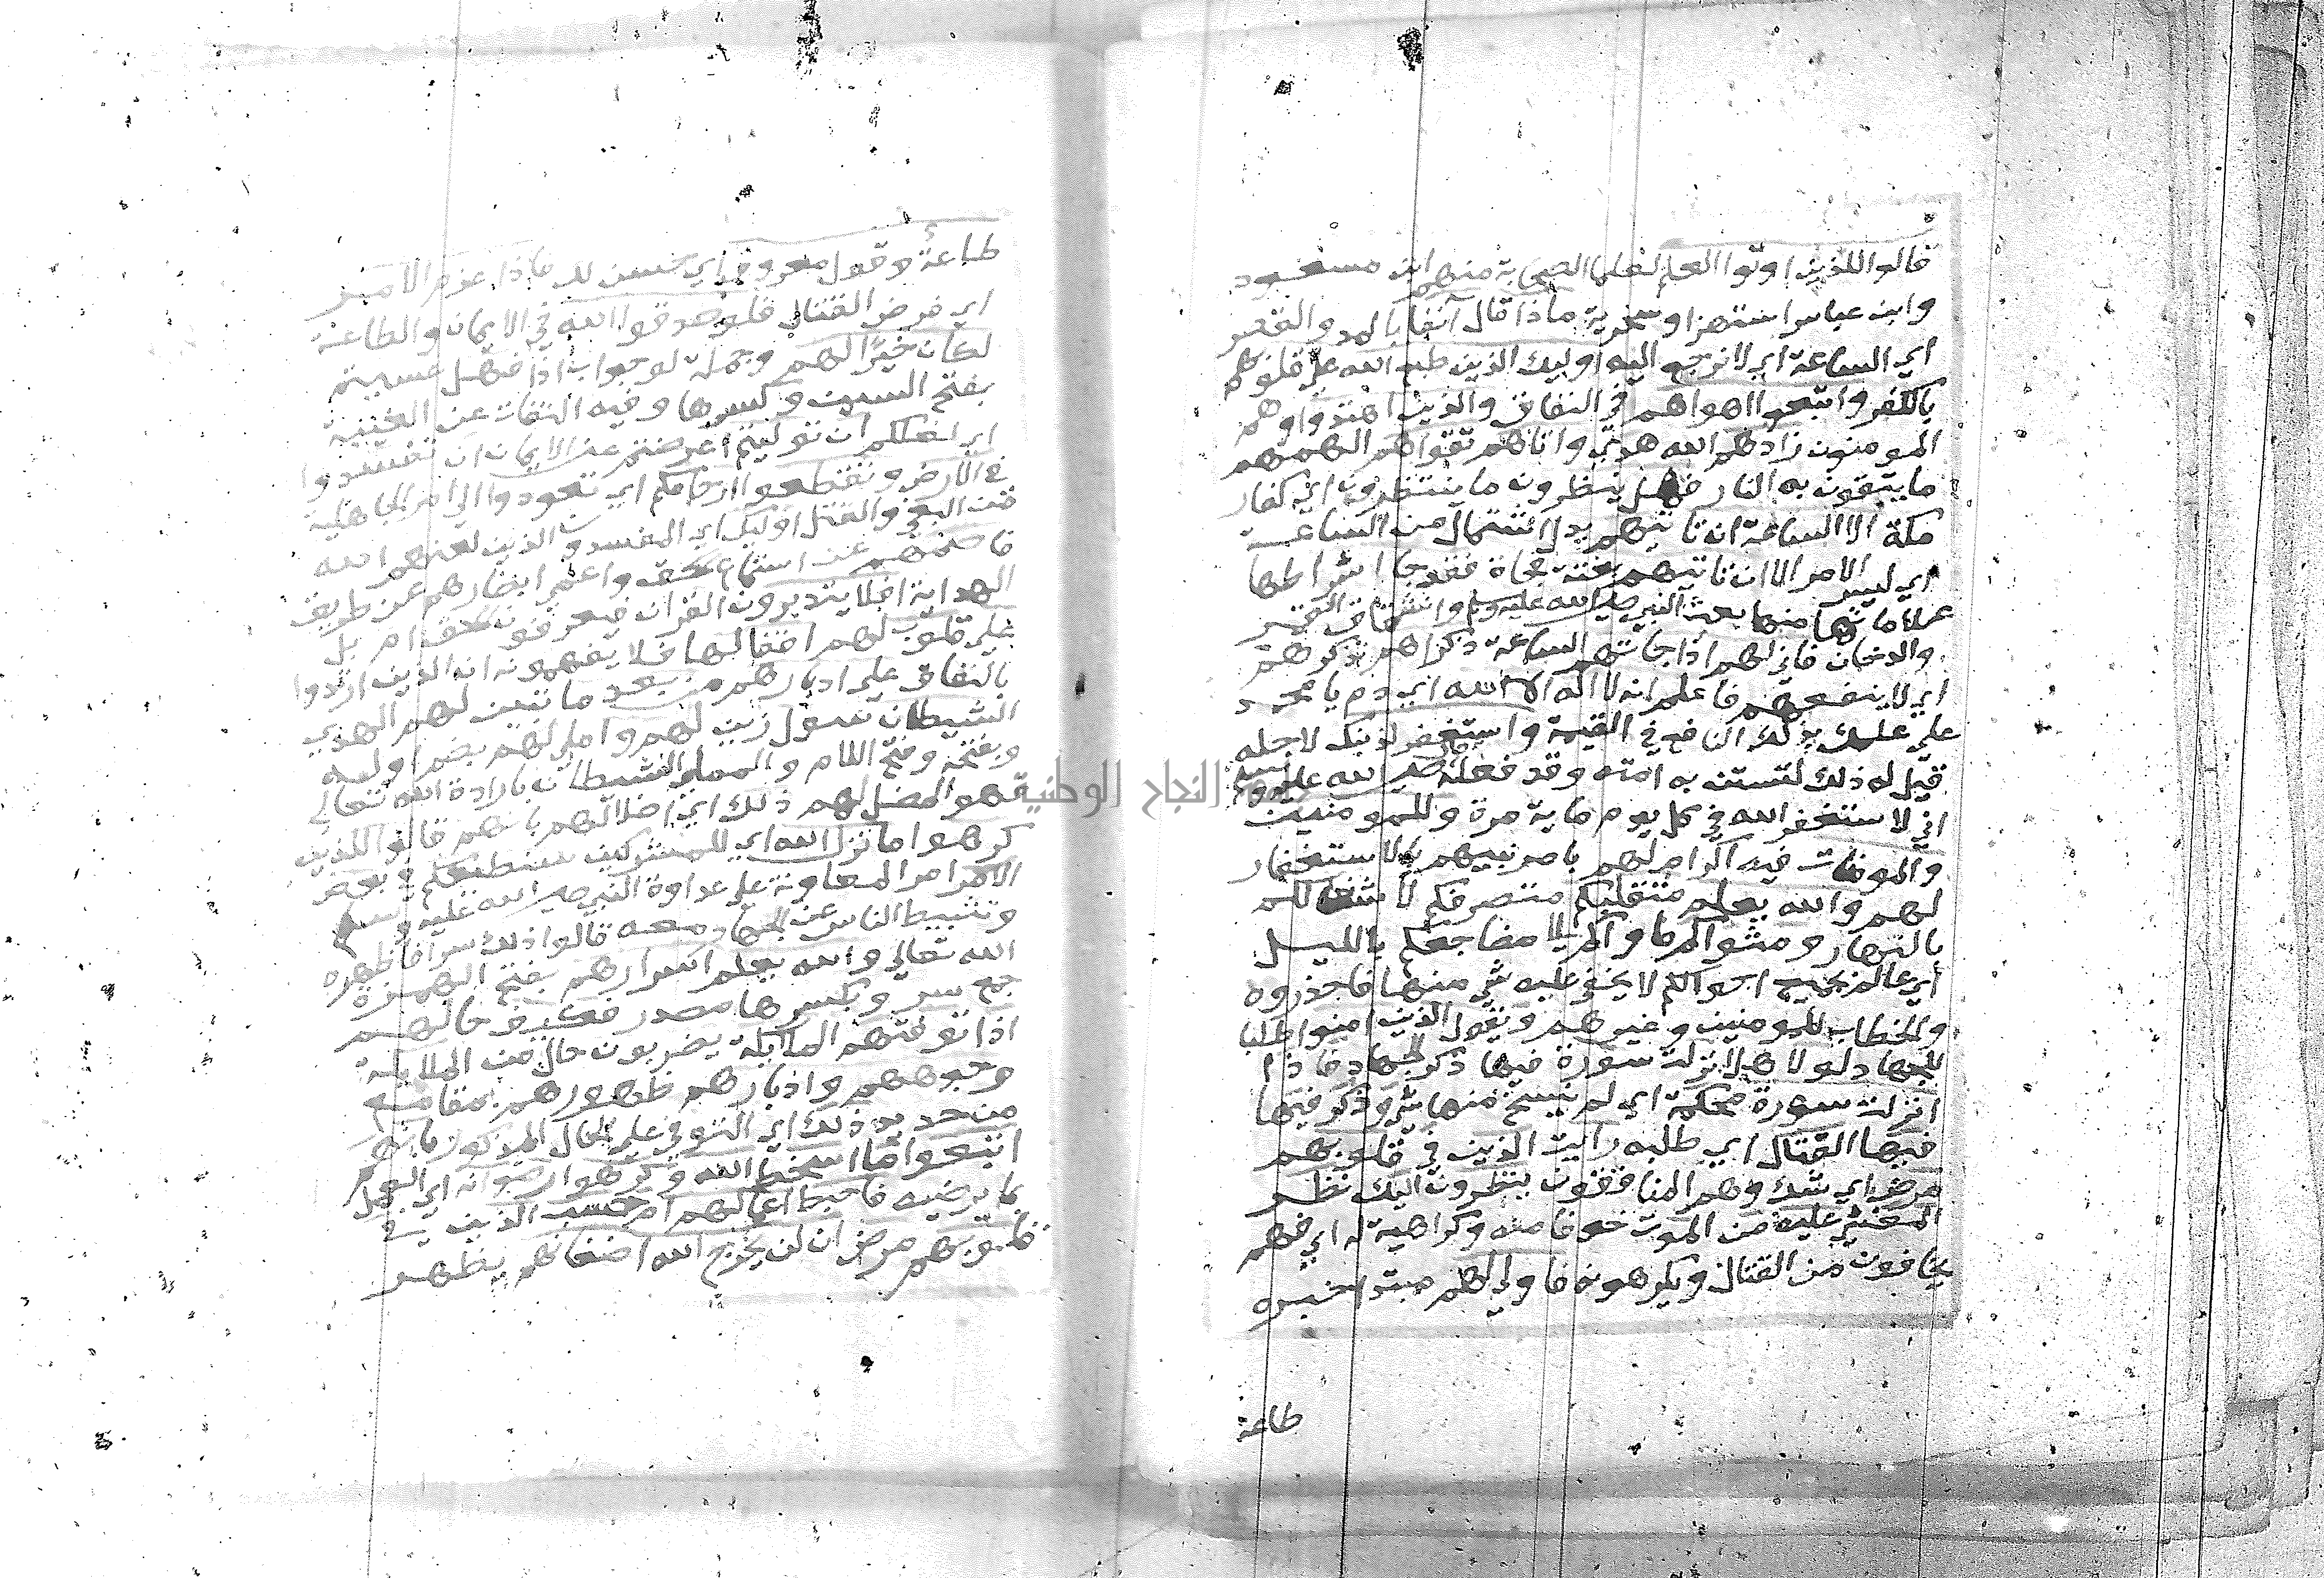 قالوا للذين اوتوا العلم لعلما الصحابة منهم ابن مسعود
وابن عباس استهزا وسخرية ماذا قال آنفا بالمد والقصر
اي الساعة اي لا نرجع اليه اوليك الذين طبع الله على قلوبهم
بالكفر واتبعوا اهواهم في النفاق والذين اهتدوا وهم
المومنون زادهم الله هدي واتاهم تقواهم الهمهم
ما يتقون به النار فهل ينظرون ما ينتظرون اي كفار
مكة الا الساعة ان تاتيهم بدل اشتمال من الساعة
اي ليس الامر الا ان تاتيهم بغتة فجاة فقد جا اشراطها
علاماتها منها بعث النبي صلى الله عليه وسلم وانشقاق القمر
والدخان فاني لهم اذا جاتهم الساعة ذكراهم تذكرهم
اي لا ينفعهم فاعلم انه لا اله الا الله اي دم يا محمد
على علمك بذلك النافع في القيمة واستغفر لذنبك لاجله
قيل له ذلك لتستن به امته وقد فعله صلى الله عليه وسلم
اني لاستغفر الله في كل يوم ماية مرة وللمومنين
والمومنات فيه اكرام لهم بامر نبيهم بالاستغفار
لهم والله يعلم متقلبكم متصرفكم لاشغالكم
بالنهار ومثواكم ماواكم الى مضاجعكم بالليل
اي عالم بجميع احوالكم لا يخفى عليه شي منها فاحذروه
والخطاب للمومنين وغيرهم ويقول الذين امنوا طلبا
للجهاد لولا هلا نزلت سورة فيها ذكر الجهاد فاذا
انزلت سورة محكمة اي لم ينسخ منها شي وذكر فيها
فيها القتال اي طلبه رايت الذين في قلوبهم
مرض اي شك وهم المنافقون ينظرون اليك نظر
المغشي عليه من الموت خوفا منه وكراهية له اي فهم
يخافون من القتال ويكرهونه فاولى لهم مبتدا خبره
طاعة
طاعة وقول معروف اي حسن لك فاذا عزم الامر
اي فرض القتال فلو صدقوا الله في الايمان والطاعة
لكان خيرا لهم وجملة لو جواب اذا فهل عسيتم
بفتح السين وكسرها وفيه التفات عن الغيبة
اي لعلكم ان توليتم اعرضتم عن الايمان ان تفسدوا
في الارض وتقطعوا ارحامكم اي تعودوا الى امر الجاهلية
من البغي والقتل اوليك اي المفسدون الذين لعنهم الله
فاصمهم عن استماع الحق واعمى ابصارهم عن طريق
الهداية افلا يتدبرون القران فيعرفون الحق ام بل
على قلوب لهم اقفالها فلا يفهمونه ان الذين ارتدوا
بالنفاق على ادبارهم من بعد ما تبين لهم الهدي
الشيطان سول زين لهم واملي لهم بضم اوله
وبفتحه وفتح اللام والمملي الشيطان بارادة الله تعالى
فهو المضل لهم ذلك اي اضلالهم بانهم قالوا للذين
كرهوا ما نزل الله اي للمشركين سنطيعكم في بعض
الامر امر المعاونة على عداوة النبي صلى الله عليه وسلم
وتثبيط الناس عن الجهاد معه قالوا ذلك سرا فاظهره
الله تعالي والله يعلم اسرارهم بفتح الهمزة
جمع سر وبكسرها مصدر فكيف حالهم
اذا توفتهم الملايكة يضربون حال من الملايكة
وجوههم وادبارهم ظهورهم بمقامع
من حديد ذلك اي التوفي على الحال المذكور بانهم
اتبعوا ما اسخط الله وكرهوا رضوانه اي العمل
بما يرضيه فاحبط اعمالهم ام حسب الذين في
قلوبهم مرض ان لن يخرج الله اضغانهم يظهر
جامعة النجاح الوطنية